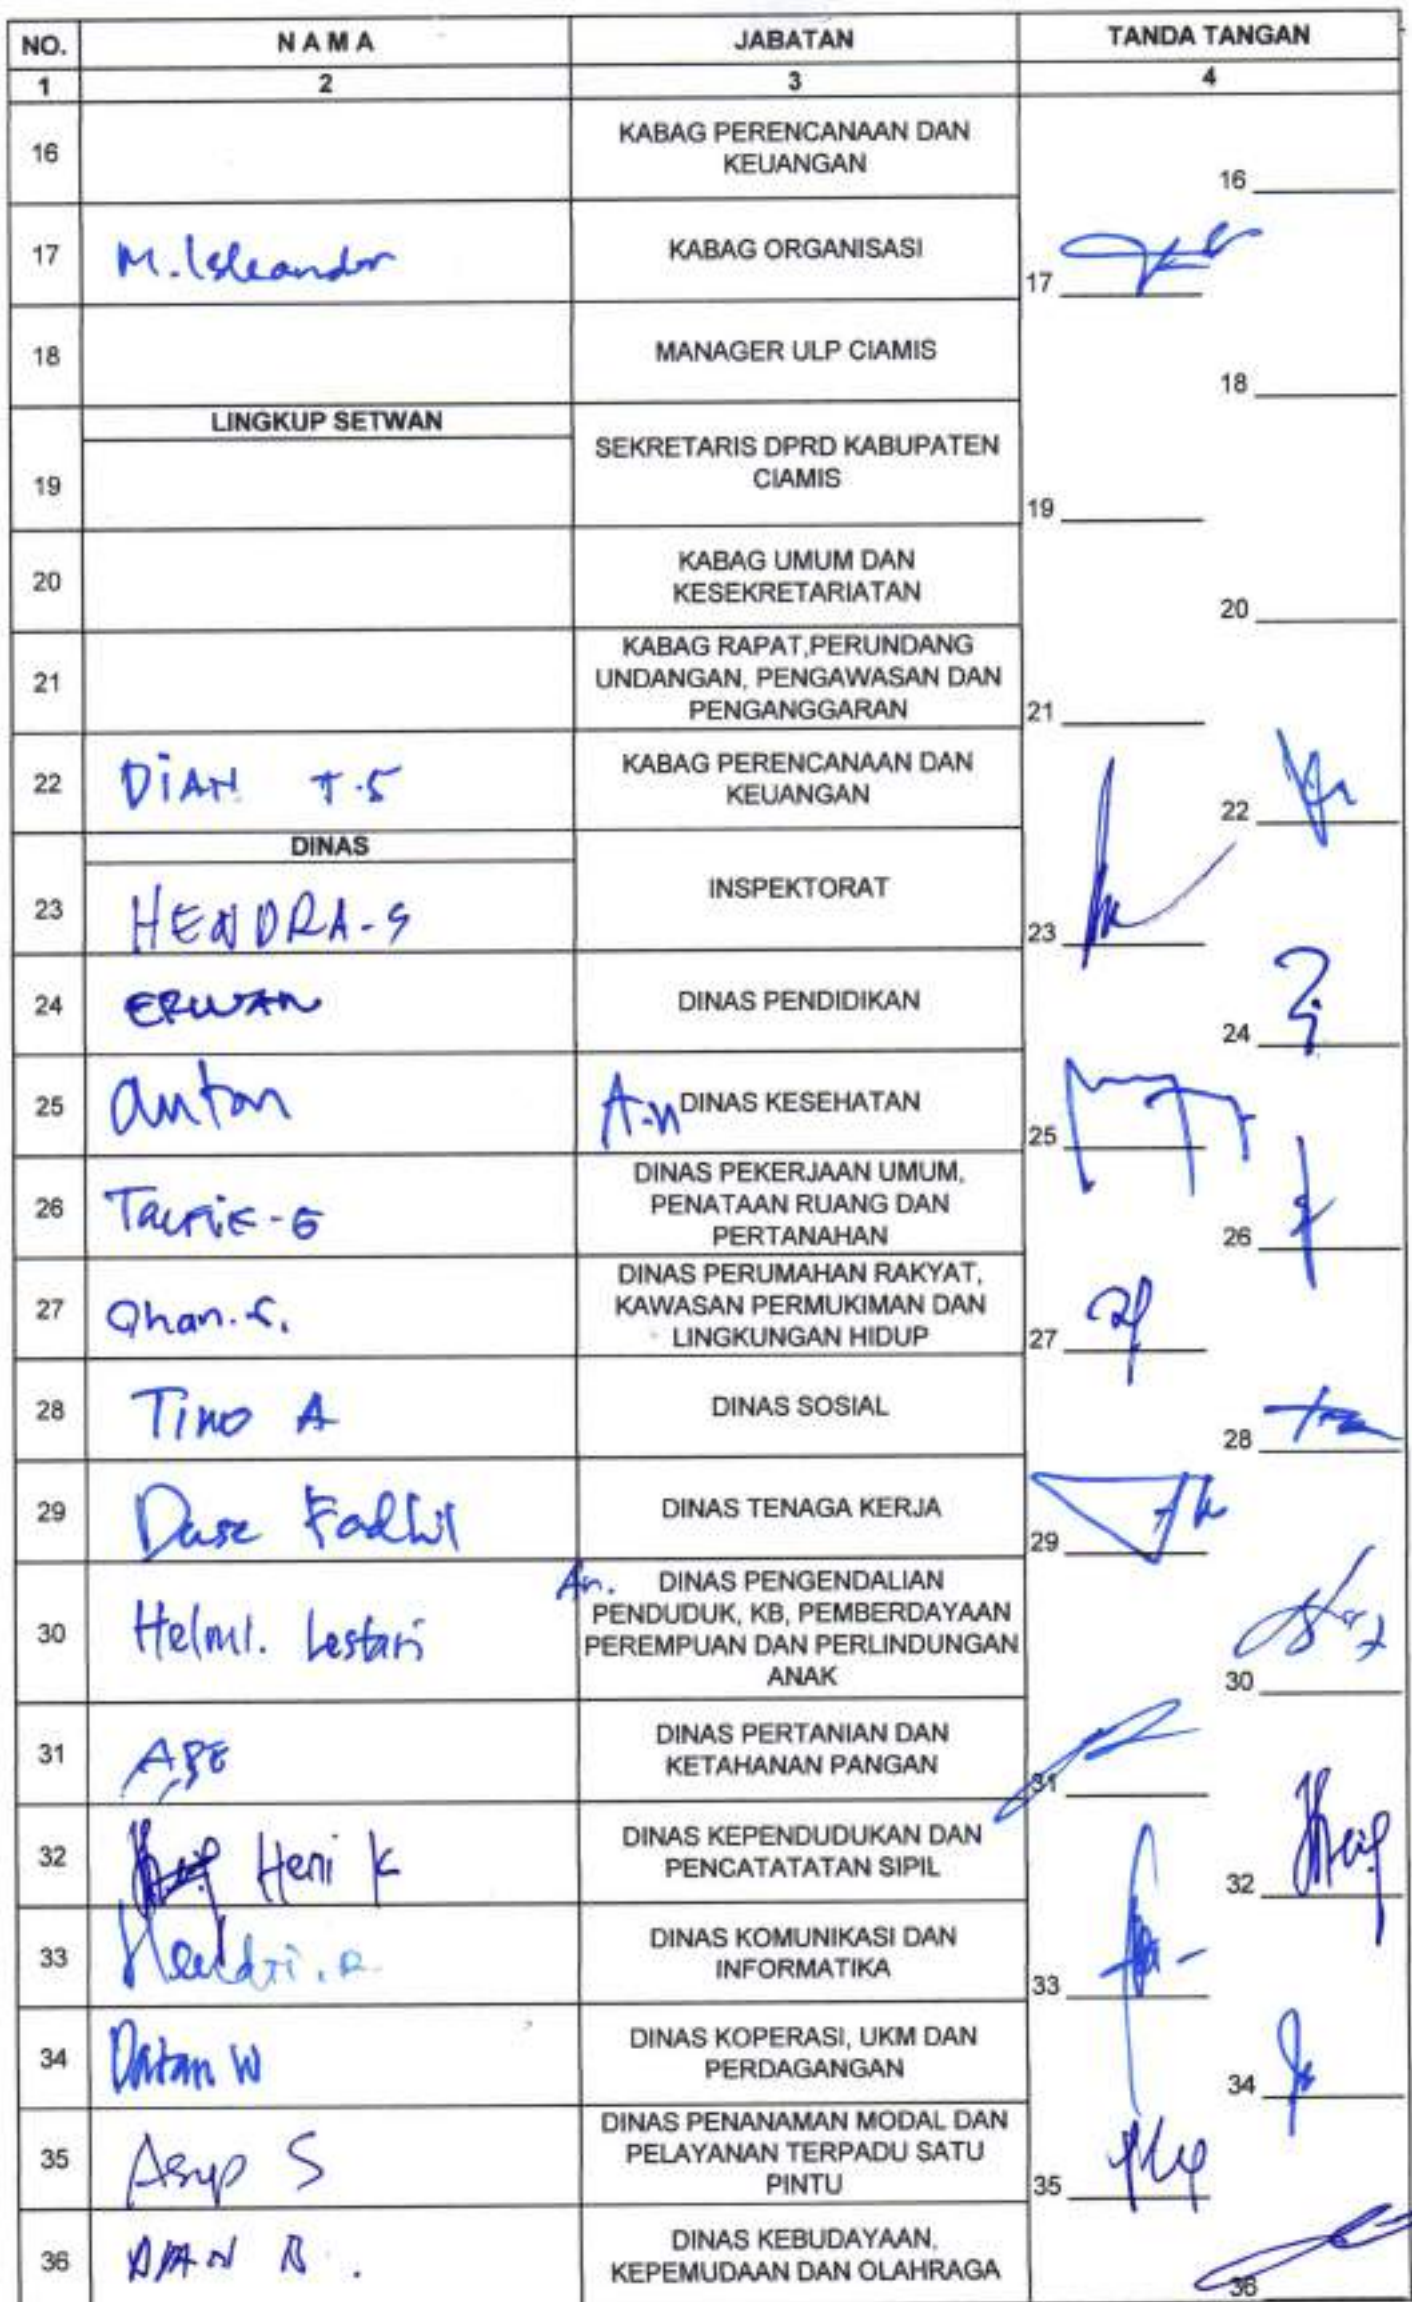 NO. N A M A JABATAN TANDA TANGAN
1 2 3 4
16 KABAG PERENCANAAN DAN
KEUANGAN 16
17 M. Iskandar KABAG ORGANISASI 17
18 MANAGER ULP CIAMIS 18
LINGKUP SETWAN
19 SEKRETARIS DPRD KABUPATEN
CIAMIS 19
20 KABAG UMUM DAN
KESEKRETARIATAN 20
21 KABAG RAPAT,PERUNDANG
UNDANGAN, PENGAWASAN DAN
PENGANGGARAN 21
22 DIAN T.S KABAG PERENCANAAN DAN
KEUANGAN 22
DINAS
23 HENDRA-S INSPEKTORAT 23
24 ERWAN DINAS PENDIDIKAN 24
25 anton A.n DINAS KESEHATAN 25
26 Taufik-G DINAS PEKERJAAN UMUM,
PENATAAN RUANG DAN
PERTANAHAN 26
27 DINAS PERUMAHAN RAKYAT,
KAWASAN PERMUKIMAN DAN
LINGKUNGAN HIDUP 27
28 Tino A DINAS SOSIAL 28
29 Fadhil DINAS TENAGA KERJA 29
30 Helmi. Lestari An. DINAS PENGENDALIAN
PENDUDUK, KB, PEMBERDAYAAN
PEREMPUAN DAN PERLINDUNGAN
ANAK 30
31 DINAS PERTANIAN DAN
KETAHANAN PANGAN 31
32 Heni K DINAS KEPENDUDUKAN DAN
PENCATATATAN SIPIL 32
33 Hendri.R DINAS KOMUNIKASI DAN
INFORMATIKA 33
34 DINAS KOPERASI, UKM DAN
PERDAGANGAN 34
35 Asep S DINAS PENANAMAN MODAL DAN
PELAYANAN TERPADU SATU
PINTU 35
36 DIAN B. DINAS KEBUDAYAAN,
KEPEMUDAAN DAN OLAHRAGA 36